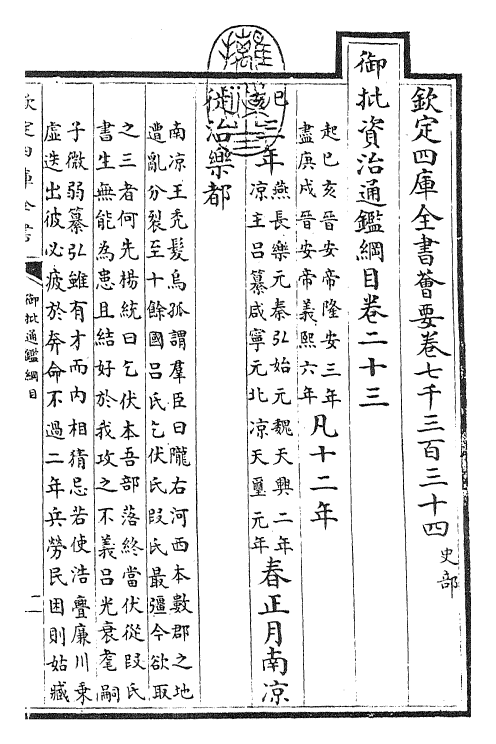 欽定四庫全書薈要卷七千三百三十四 史部
御批資治通鑑綱目卷二十三
起巳亥晉安帝隆安三年
盡庚戌晉安帝義熙六年
凡十二年
巳亥
三年
燕長樂元秦弘始元魏天興二年
涼主呂纂咸寧元北凉天璽元年
春正月南凉
徙治樂都
南凉王禿髮烏孤謂羣臣曰隴右河西本數郡之地
遭亂分裂至十餘國呂氏乞伏氏段氏最彊今欲取
之三者何先楊統曰乞伏本吾部落終當伏從段氏
書生無能為患且結好於我攻之不義呂光衰耄嗣
子微弱纂弘雖有才而內相猜忌若使浩亹廉川乗
虛迭出彼必疲於奔命不過二年兵勞民困則姑臧
欽定四庫全書
御批通鑑綱目